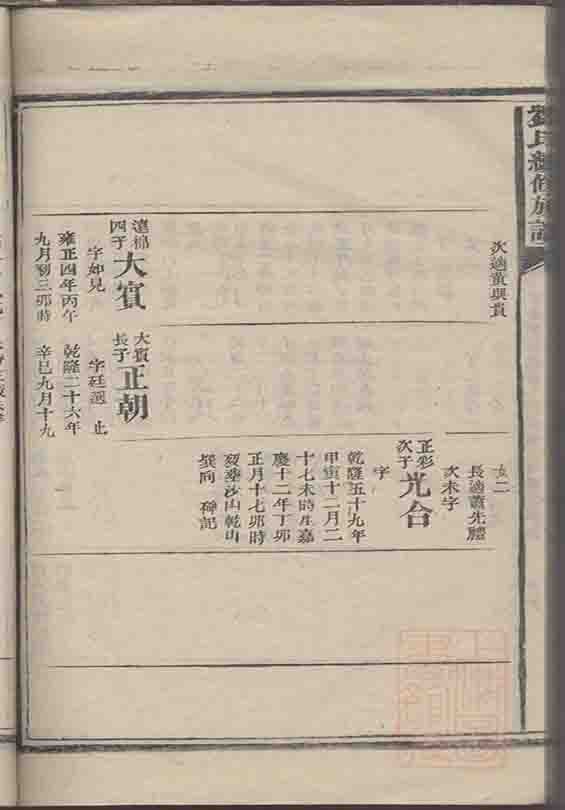 劉氏續修族譜
次適黃與貴
女二
長適蕭先體
次未字
正彩
次子
光合
字
乾隆五十九年
甲寅十二月二
十七未時生嘉
慶十二年丁卯
正月十七卯時
歿葬沙山乾山
巽向 碑記
大賓
長子
正朝
字廷選 止
乾隆二十六年
辛巳九月十九
達棉
四子
大賓
字如見
雍正四年丙午
九月初三卯時